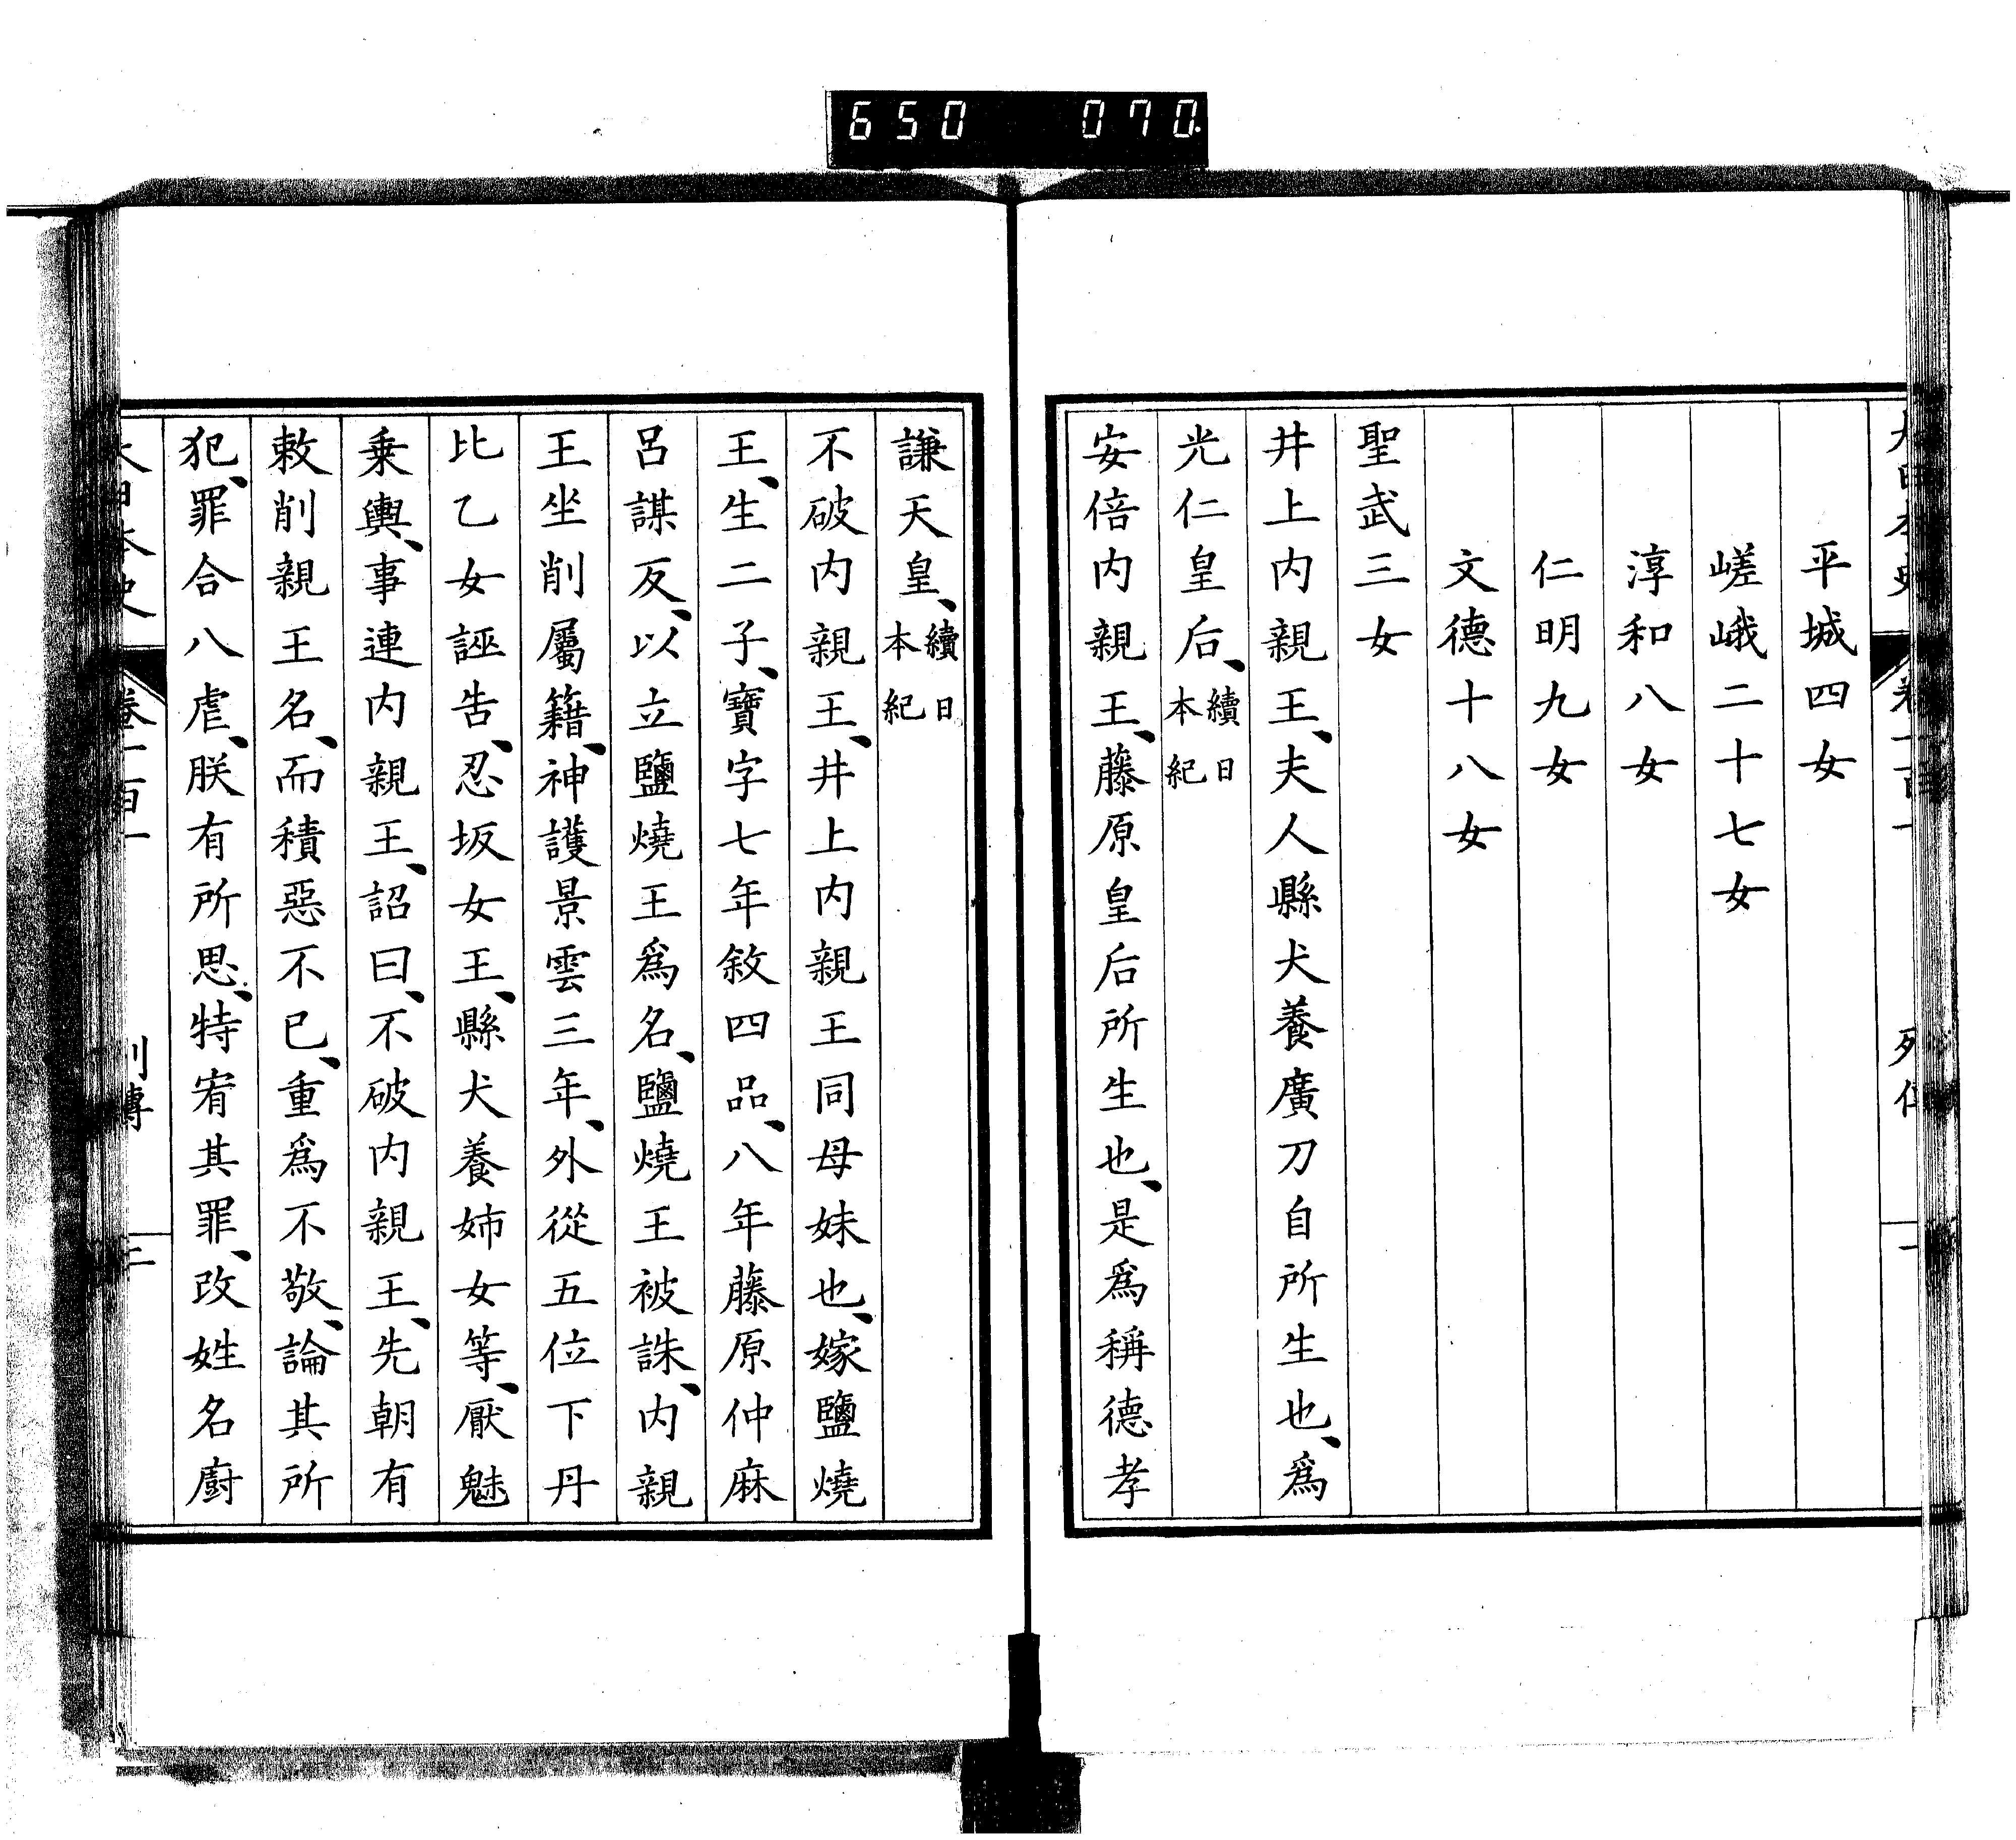 650 070
平城四女
嵯峨二十七女
淳和八女
仁明九女
文德十八女
聖武三女
井上内親王、夫人縣犬養廣刀自所生也、爲
光仁皇后、續日本紀
安倍内親王、藤原皇后所生也、是爲稱德孝
謙天皇、續日本紀
不破内親王、井上内親王同母妹也、嫁鹽燒
王、生二子、寶字七年敘四品、八年藤原仲麻
呂謀反、以立鹽燒王爲名、鹽燒王被誅、内親
王坐削屬籍、神護景雲三年、外從五位下丹
比乙女誣告、忍坂女王、縣犬養姉女等、厭魅
乘輿、事連内親王、詔曰、不破内親王、先朝有
敕削親王名、而積惡不已、重爲不敬、論其所
犯、罪合八虐、朕有所思、特宥其罪、改姓名廚